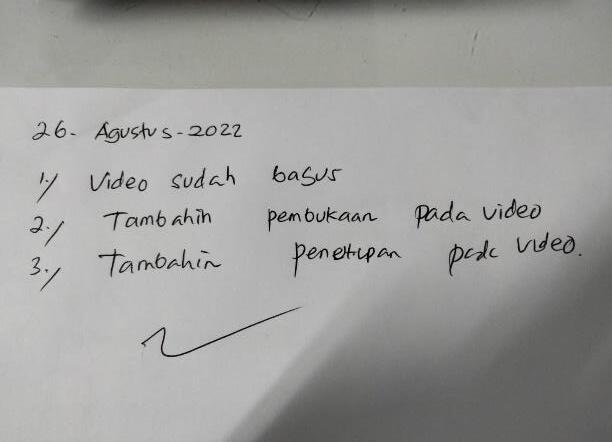 26- Agustus-2022
1./ Video sudah bagus
2./ Tambahin pembukaan pada video
3./ Tambahin penetupan pada video.